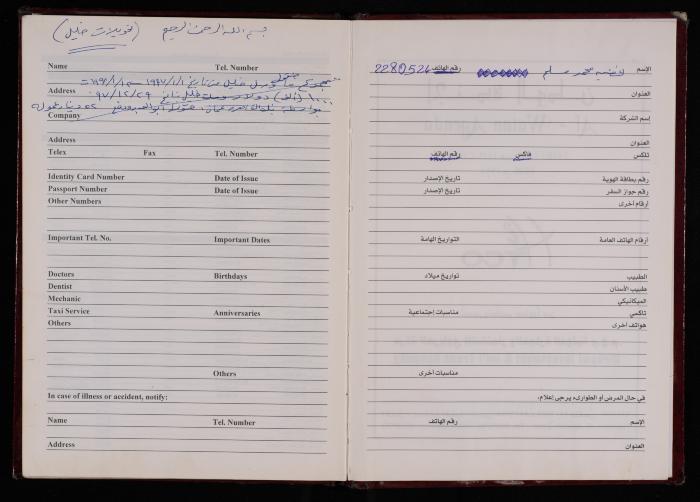 بسم الله الرحمن الرحيم (تحويلات خليل)
Name Tel. Number
Address
Company
Address
Telex Fax Tel. Number
Identity Card Number Date of Issue
Passport Number Date of Issue
Other Numbers
Important Tel. No. Important Dates
Doctors Birthdays
Dentist
Mechanic
Taxi Service Anniversaries
Others
Others
In case of illness or accident, notify:
Name Tel. Number
Address
الإسم محمد رقم الهاتف 2280524
العنوان
إسم الشركة
العنوان
تلكس فاكس رقم الهاتف
رقم بطاقة الهوية تاريخ الإصدار
رقم جواز السفر تاريخ الإصدار
أرقام أخرى
أرقام الهاتف العامة التواريخ الهامة
الطبيب تواريخ ميلاد
طبيب الأسنان
الميكانيكي
تاكسي مناسبات إجتماعية
هواتف أخرى
مناسبات أخرى
في حال المرض أو الطوارىء يرجى إعلام:
الإسم رقم الهاتف
العنوان